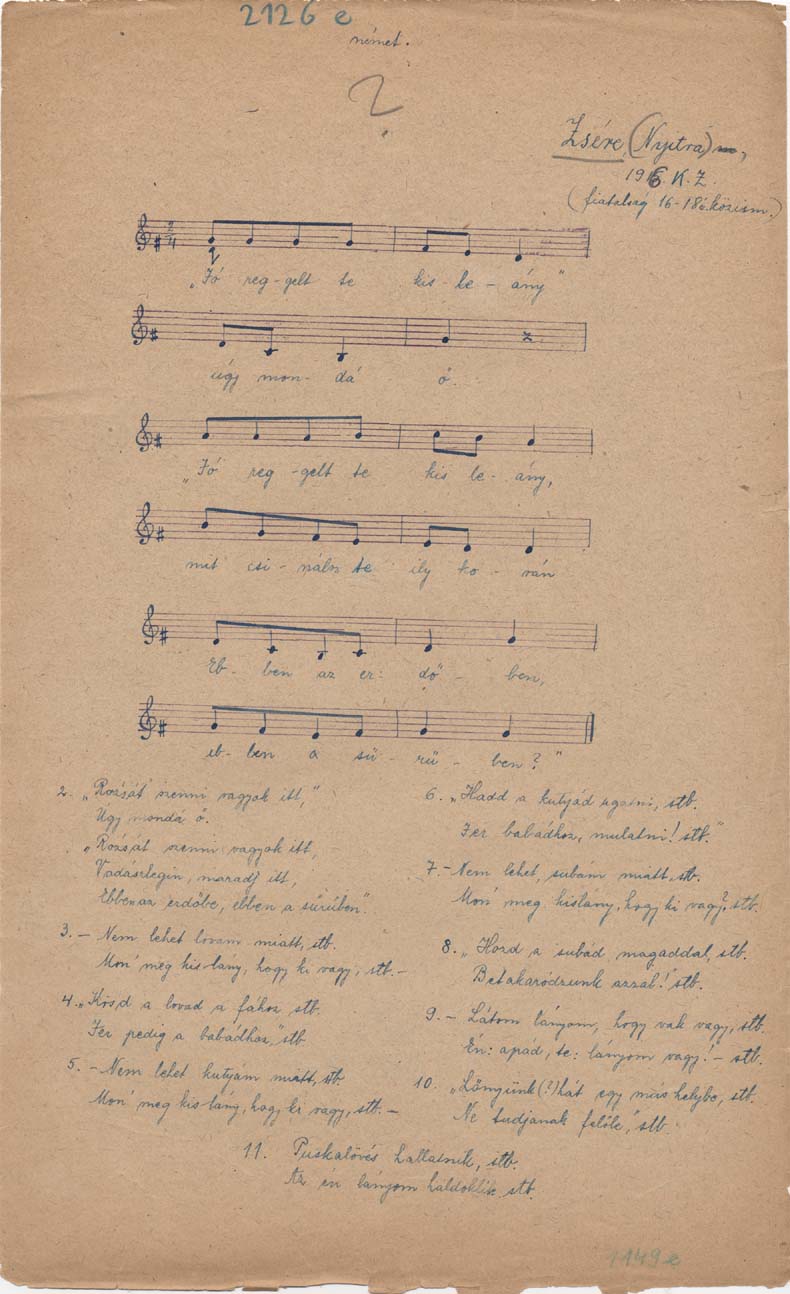 2126 e
német.
?
Zsére, (Nyitra),
1916. K. Z.
(fiatalság 16-18é. közism.)
2/4
„Jó reg-gelt te kis le-ány"
úgy mon-dá ő.
„Jó reg-gelt te kis le-ány,
mit csi-nálsz te ily ko-rán
Eb-ben az er-dő-ben,
eb-ben a sű-rű-ben?"
2. „Rózsát szenni vagyok itt,"
Úgy mondá ő.
„Rózsát szenni vagyok itt,
Vadászlegin, maradj itt,
Ebben az erdőbe, ebben a sűrűben".
3. – Nem lehet lovam miatt, stb.
Mon' meg kis-lány, hogy ki vagy, stb. –
4. „Kösd a lovad a fához stb.
Jer pedig a babádhoz," stb
5. – Nem lehet kutyám miatt, stb.
Mon' meg kis lány, hogy ki vagy, stb. –
6. „Hadd a kutyád ugatni, stb.
Jer babádhoz, mulatni! stb."
7. – Nem lehet, subám miatt, stb.
Mon' meg kislány, hogy ki vagy? stb.
8. „Hozd a subád magaddal, stb.
Betakaródzunk azzal!" stb.
9. – Látom lányom, hogy vak vagy, stb.
Én: apád, te: lányom vagy! – stb.
10. „Lőngünk (?) hát egy más helybe, stb.
Ne tudjanak felőle," stb
11. Puskalövés hallatnik, stb.
Az én lányom haldoklik stb.
1149 e